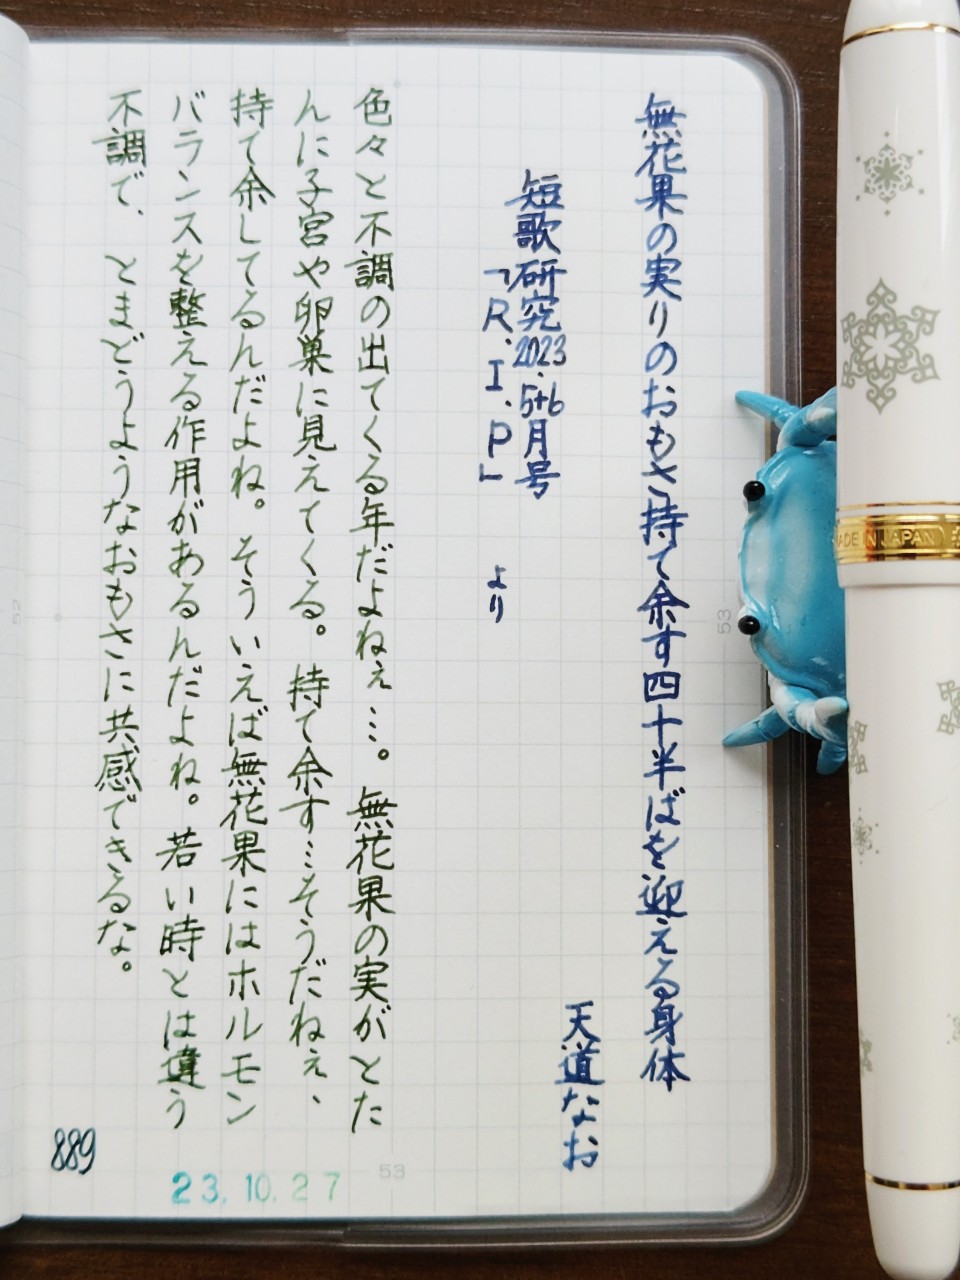 無花果の実りのおもさ持て余す四十半ばを迎える身体
天道なお
短歌研究2023.5+6月号
「R.I.P」 より
色々と不調の出てくる年だよねぇ…。無花果の実がとた
んに子宮や卵巣に見えてくる。持て余す…そうだねぇ、
持て余してるんだよね。そういえば無花果にはホルモン
バランスを整える作用があるんだよね。若い時とは違う
不調で、とまどうようなおもさに共感できるな。
889
23.10.27
53
53
52
MADE IN JAPAN